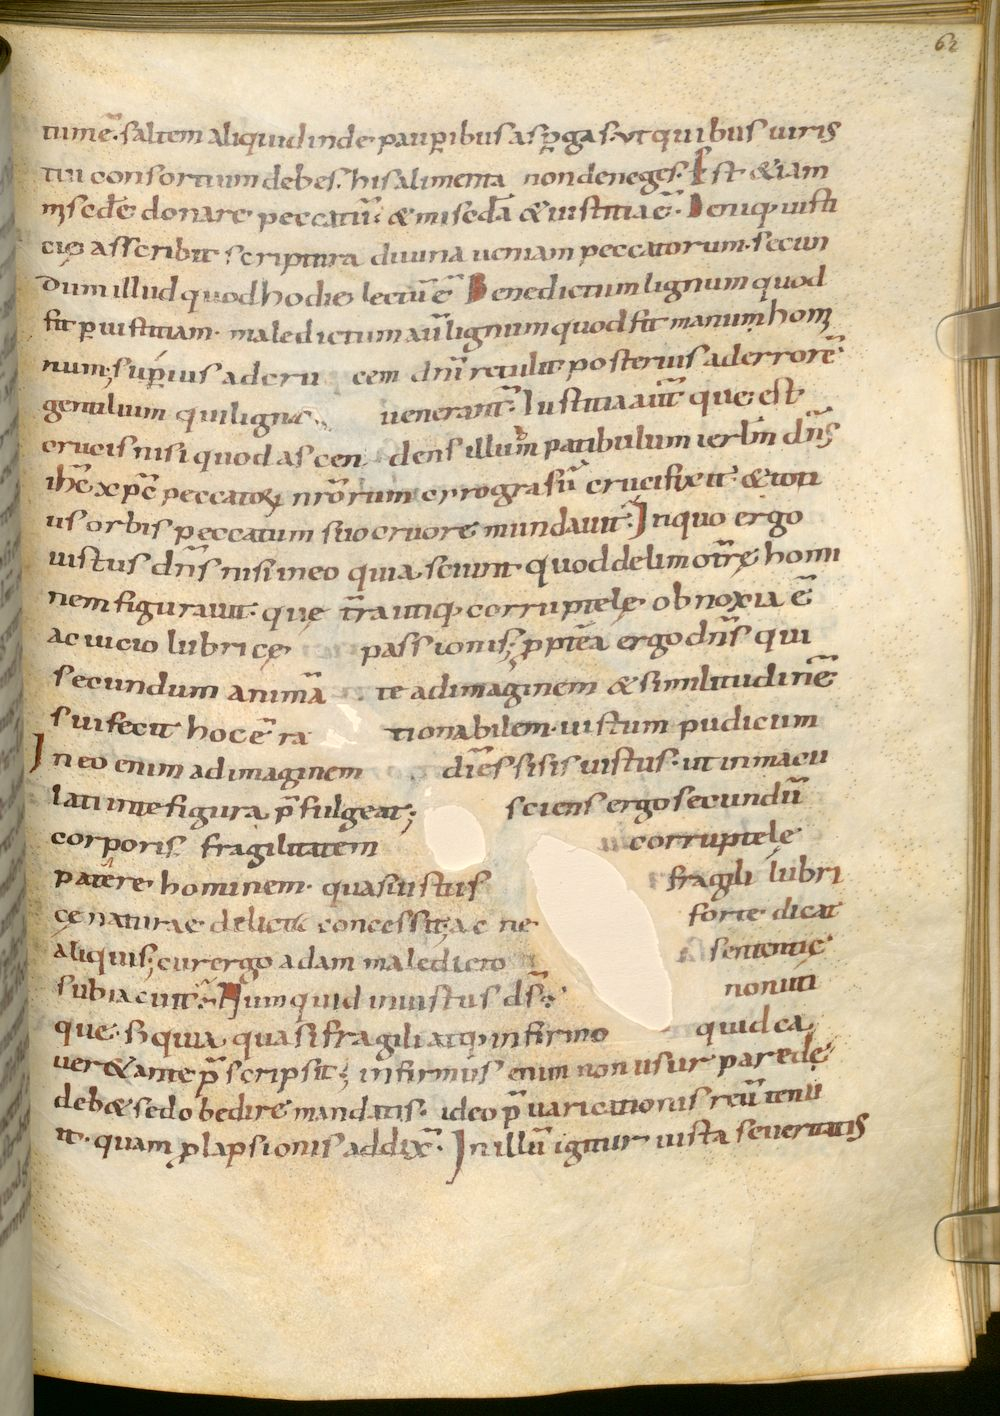 62
tumē. saltem aliquid inde pauꝑibus asꝑgas. ut quibus uiris
tui consortium debes. his alimenta non deneges. Est &iam
mĩscd̄e donare peccatū. & misc̄da & iustitia ē. Deniq; iusti
cię asscribit scriptura diuina ueniam peccatorum. secun
dum illud quod hodie lectū ē Benedictum lignum quod
fit ꝑ iustitiam. maledictum aū lignum quod fit manum homi
num; suꝑius ad cru cem dn̄i retulit posterius ad errorē
gentilium qui ligna uenerant̄. Iustitia aut̄ que est
crucis nisi quod ascen dens illum patibulum uerbm̄ dn̄s
ih̄c xp̄c peccatoꝝ nr̄orum cyrografū crucifixit. & toti
us orbis peccatum suo cruore mundauit. In quo ergo
iustus dn̄s nisi in eo quia sciuit quod de limo tr̄ę homi
nem figurauit. quę tr̄a utiq; corruptelę obnoxia ē
ac uicio lubricę passionis; ꝓptēa ergo dn̄s qui
secundum animā te ad imaginem & similitudinē
sui fecit hoc ē ra tionabilem. iustum pudicum
In eo enim ad imaginem di ēs si sis iustus. ut inmacu
lati in te figura p̄fulgeat; sciens ergo secundū
corporis fragilitatem corruptele
patēre hominem. quasi iustus fragili lubri
cę naturae delicta concessit; ac ne forte dicat
aliquis; cur ergo adam maledicto sententię
subiacuit. Numquid iniustus ds̄ non uti
que. sꝫ quia quasi fragili atq; infirmo quid ca
uer& ante p̄scripsit; infirmus enim non usurpare de
deb& sed obedire mandatis. ideo p̄uaricationis reū tenu
it. quam ꝓlapsionis addix̄. In illū igitur iusta seueritatis